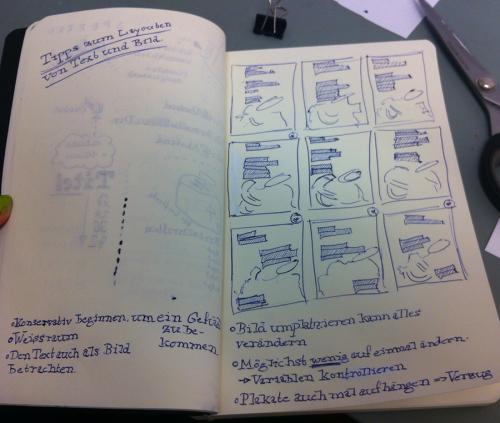 Tipps zum Layouten
von Text und Bild.
Titel
◦Konservativ beginnen, um ein Gefühl
zu be-
kommen
◦Weissraum
◦Den Text auch als Bild
betrachten.
◦Bild umplatzieren kann alles
verändern
◦Möglichst wenig auf einmal ändern.
→ Variablen kontrollieren
◦Plakate auch mal aufhängen ⇒ Verzug